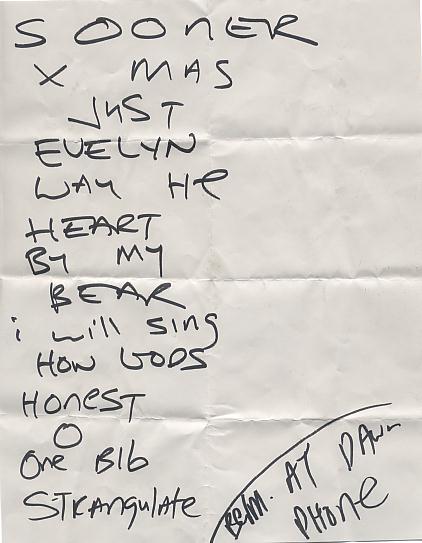 SOONER
X MAS
JUST
EVELYN
WAY HE
HEART
BY MY
BEAR
i will sing
HOW GODS
HONEST
O
One BIb
STRangulate
AT DAWN
PHONE